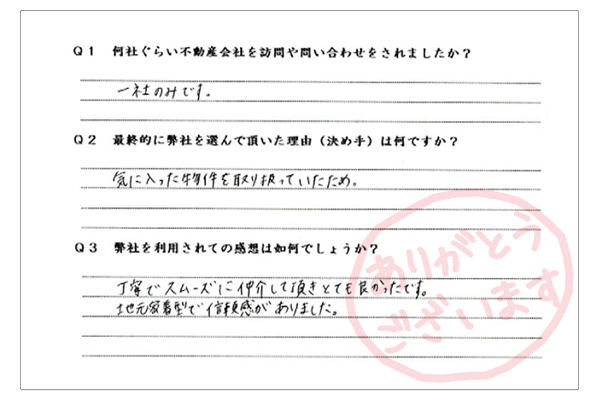 Q1 何社ぐらい不動産会社を訪問や問い合わせをされましたか？
一社のみです。
Q2 最終的に弊社を選んで頂いた理由（決め手）は何ですか？
気に入った物件を取り扱っていたため。
Q3 弊社を利用されての感想は如何でしょうか？
丁寧でスムーズに仲介して頂きとても良かったです。
地元密着型で信頼感がありました。
ありがとう
ございます